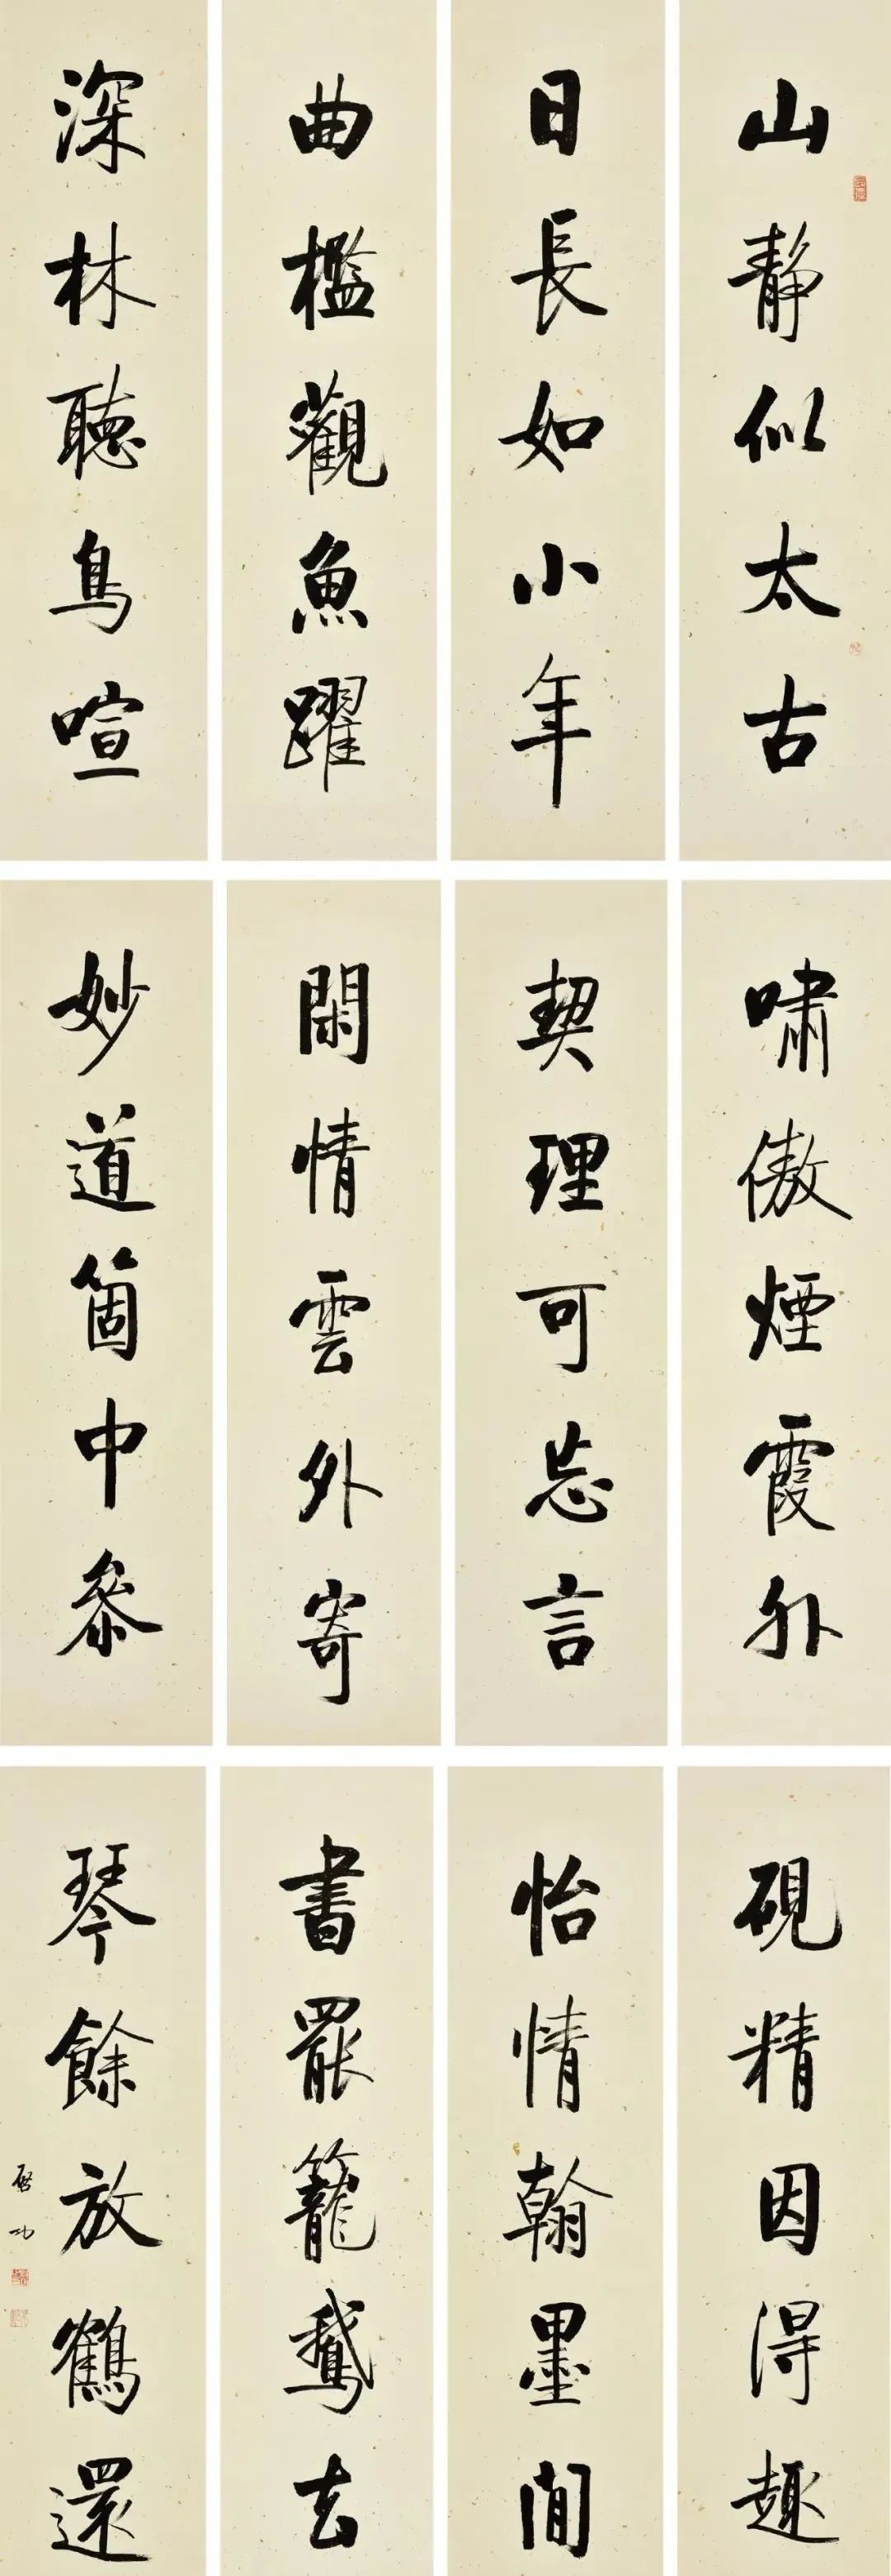 山靜似太古
日長如小年
曲檻觀魚躍
深林聽鳥喧
嘯傲煙霞外
契理可忘言
閑情雲外寄
妙道箇中參
硯精因得趣
怡情翰墨間
書罷籠鵞去
琴餘放鶴還
啓功